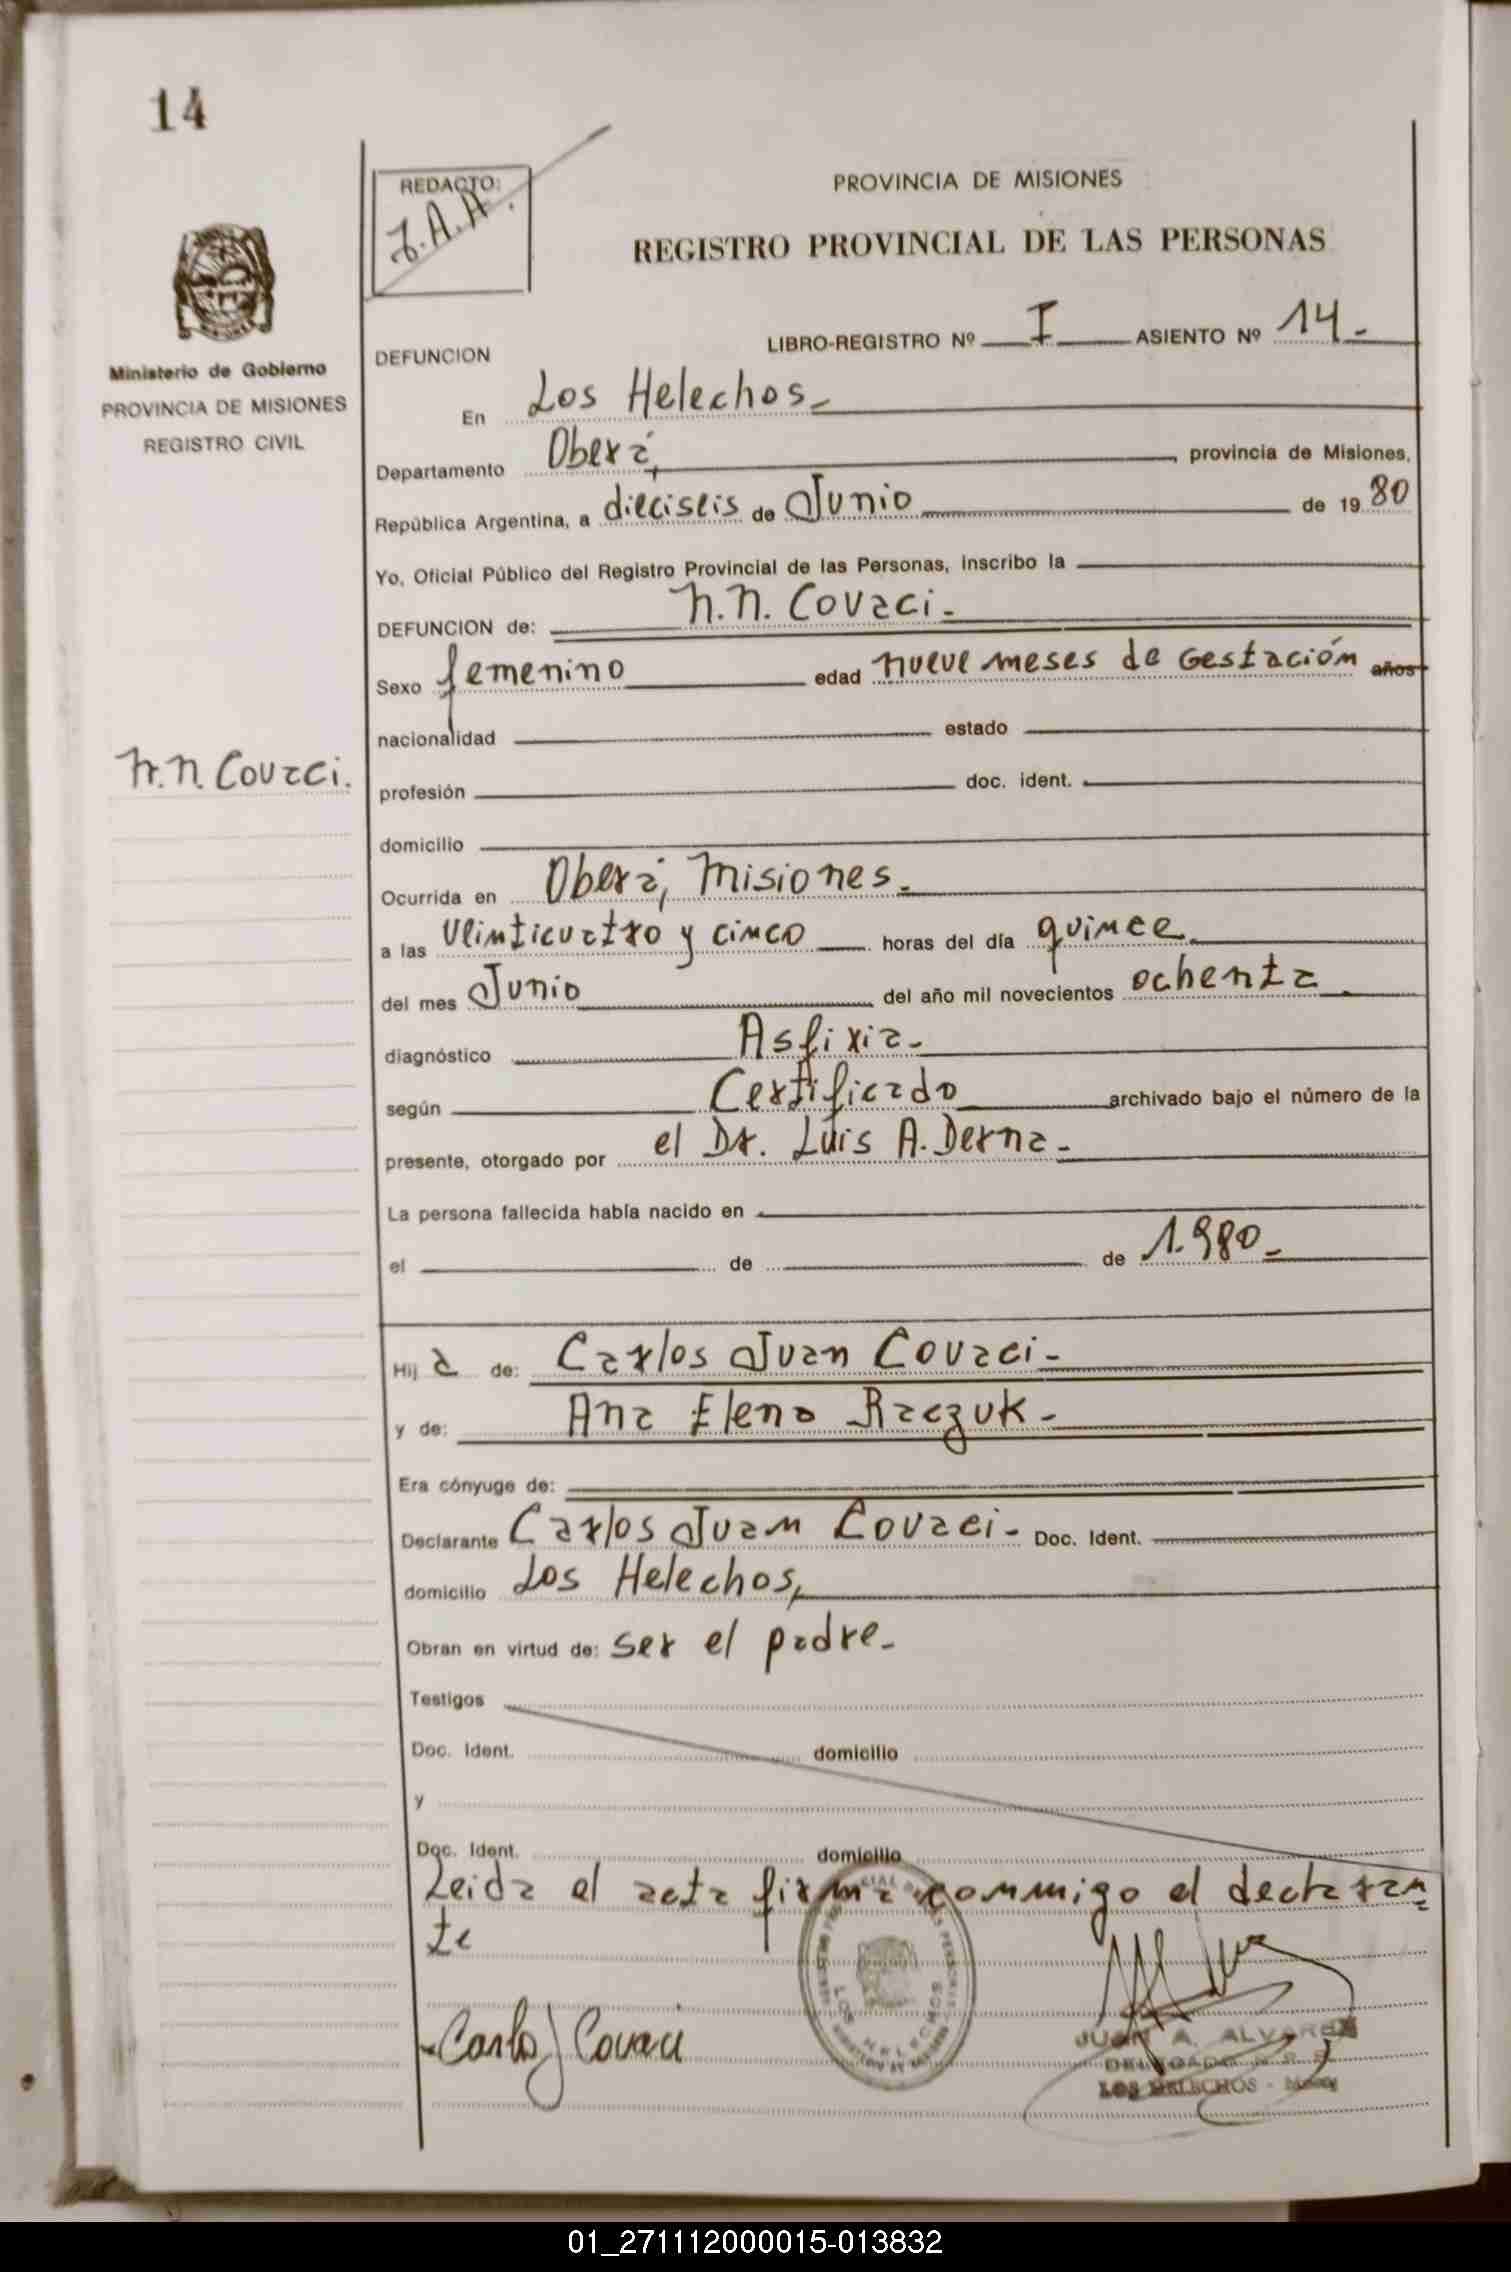 14
REDACTO:
J.A.A.
PROVINCIA DE MISIONES
REGISTRO PROVINCIAL DE LAS PERSONAS
Ministerio de Gobierno
PROVINCIA DE MISIONES
REGISTRO CIVIL
DEFUNCION LIBRO-REGISTRO Nº I ASIENTO Nº 14.-
En Los Helechos.-
Departamento Oberá, provincia de Misiones,
República Argentina, a dieciseis de Junio de 1980
Yo, Oficial Público del Registro Provincial de las Personas, inscribo la
DEFUNCION de: N.N. Covaci.-
Sexo femenino edad nueve meses de Gestación años
nacionalidad estado
N.N. Covaci.
profesión doc. ident.
domicilio
Ocurrida en Oberá, Misiones.-
a las veinticuatro y cinco horas del día quince
del mes Junio del año mil novecientos ochenta
diagnóstico Asfixia.-
según Certificado archivado bajo el número de la
presente, otorgado por el Dr. Luis A. Derna.-
La persona fallecida había nacido en
el de de 1.980.-
Hija de: Carlos Juan Covaci.-
y de: Ana Elena Raczuk.-
Era cónyuge de:
Declarante Carlos Juan Covaci.- Doc. Ident.
domicilio Los Helechos,
Obran en virtud de: ser el padre.-
Testigos
Doc. Ident. domicilio
y
Doc. Ident. domicilio
Leida el acta firma conmigo el declaran
te
Carlos J Covaci
LOS HELECHOS
JUAN A. ALVAREZ
DELEGADO R. P. P.
LOS HELECHOS - Mnes
01_271112000015-013832